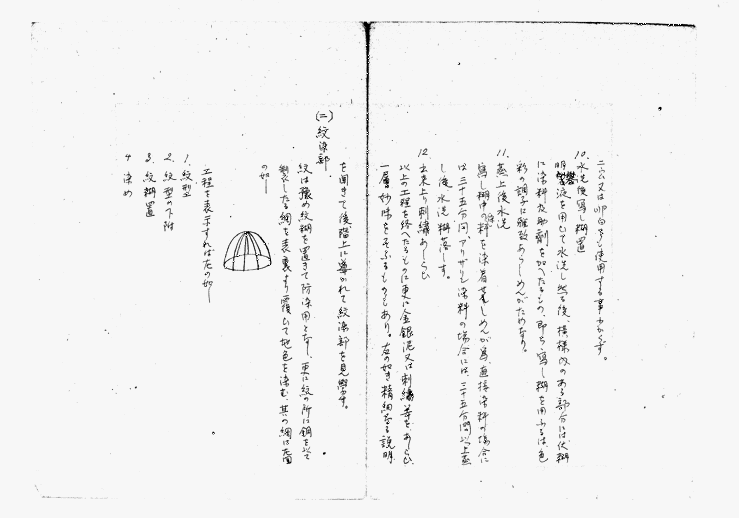 ニカワ又は卵白を使用する事もかくす。
10. 水洗後写し糊置
明礬液を用ひて水洗し然る後、模様内のある部分には伏糊
に染料及助剤を加へたるもの、即ち写し糊を用ふるは色
彩の調子に雅致あらしめんがためなり。
11. 蒸上後水洗
写し糊中の染料を染着せしめんが為、直接染料の場合に
は三十五分間、アリザリン染料の場合には、三十五分間以上蒸
し後水洗糊落しす。
12. 出来上り刺繍あしらひ
以上の工程を終へたるものに更に金銀泥又は刺繍等をあしらひ
一層妙味をそふるものもあり。左の如き精細なる説明
を聞きて後階上に導かれて紋染部を見学す。
(二) 紋染部.
紋は豫め紋糊を置きて防染用となし、更に紋の所に鋼を以て
製したる網を表裏より覆ひて地色を染む、其の網は左図
の如し
工程を表示すれば左の如し
1. 紋型
2. 紋型の下附
3. 紋糊置
4 染め